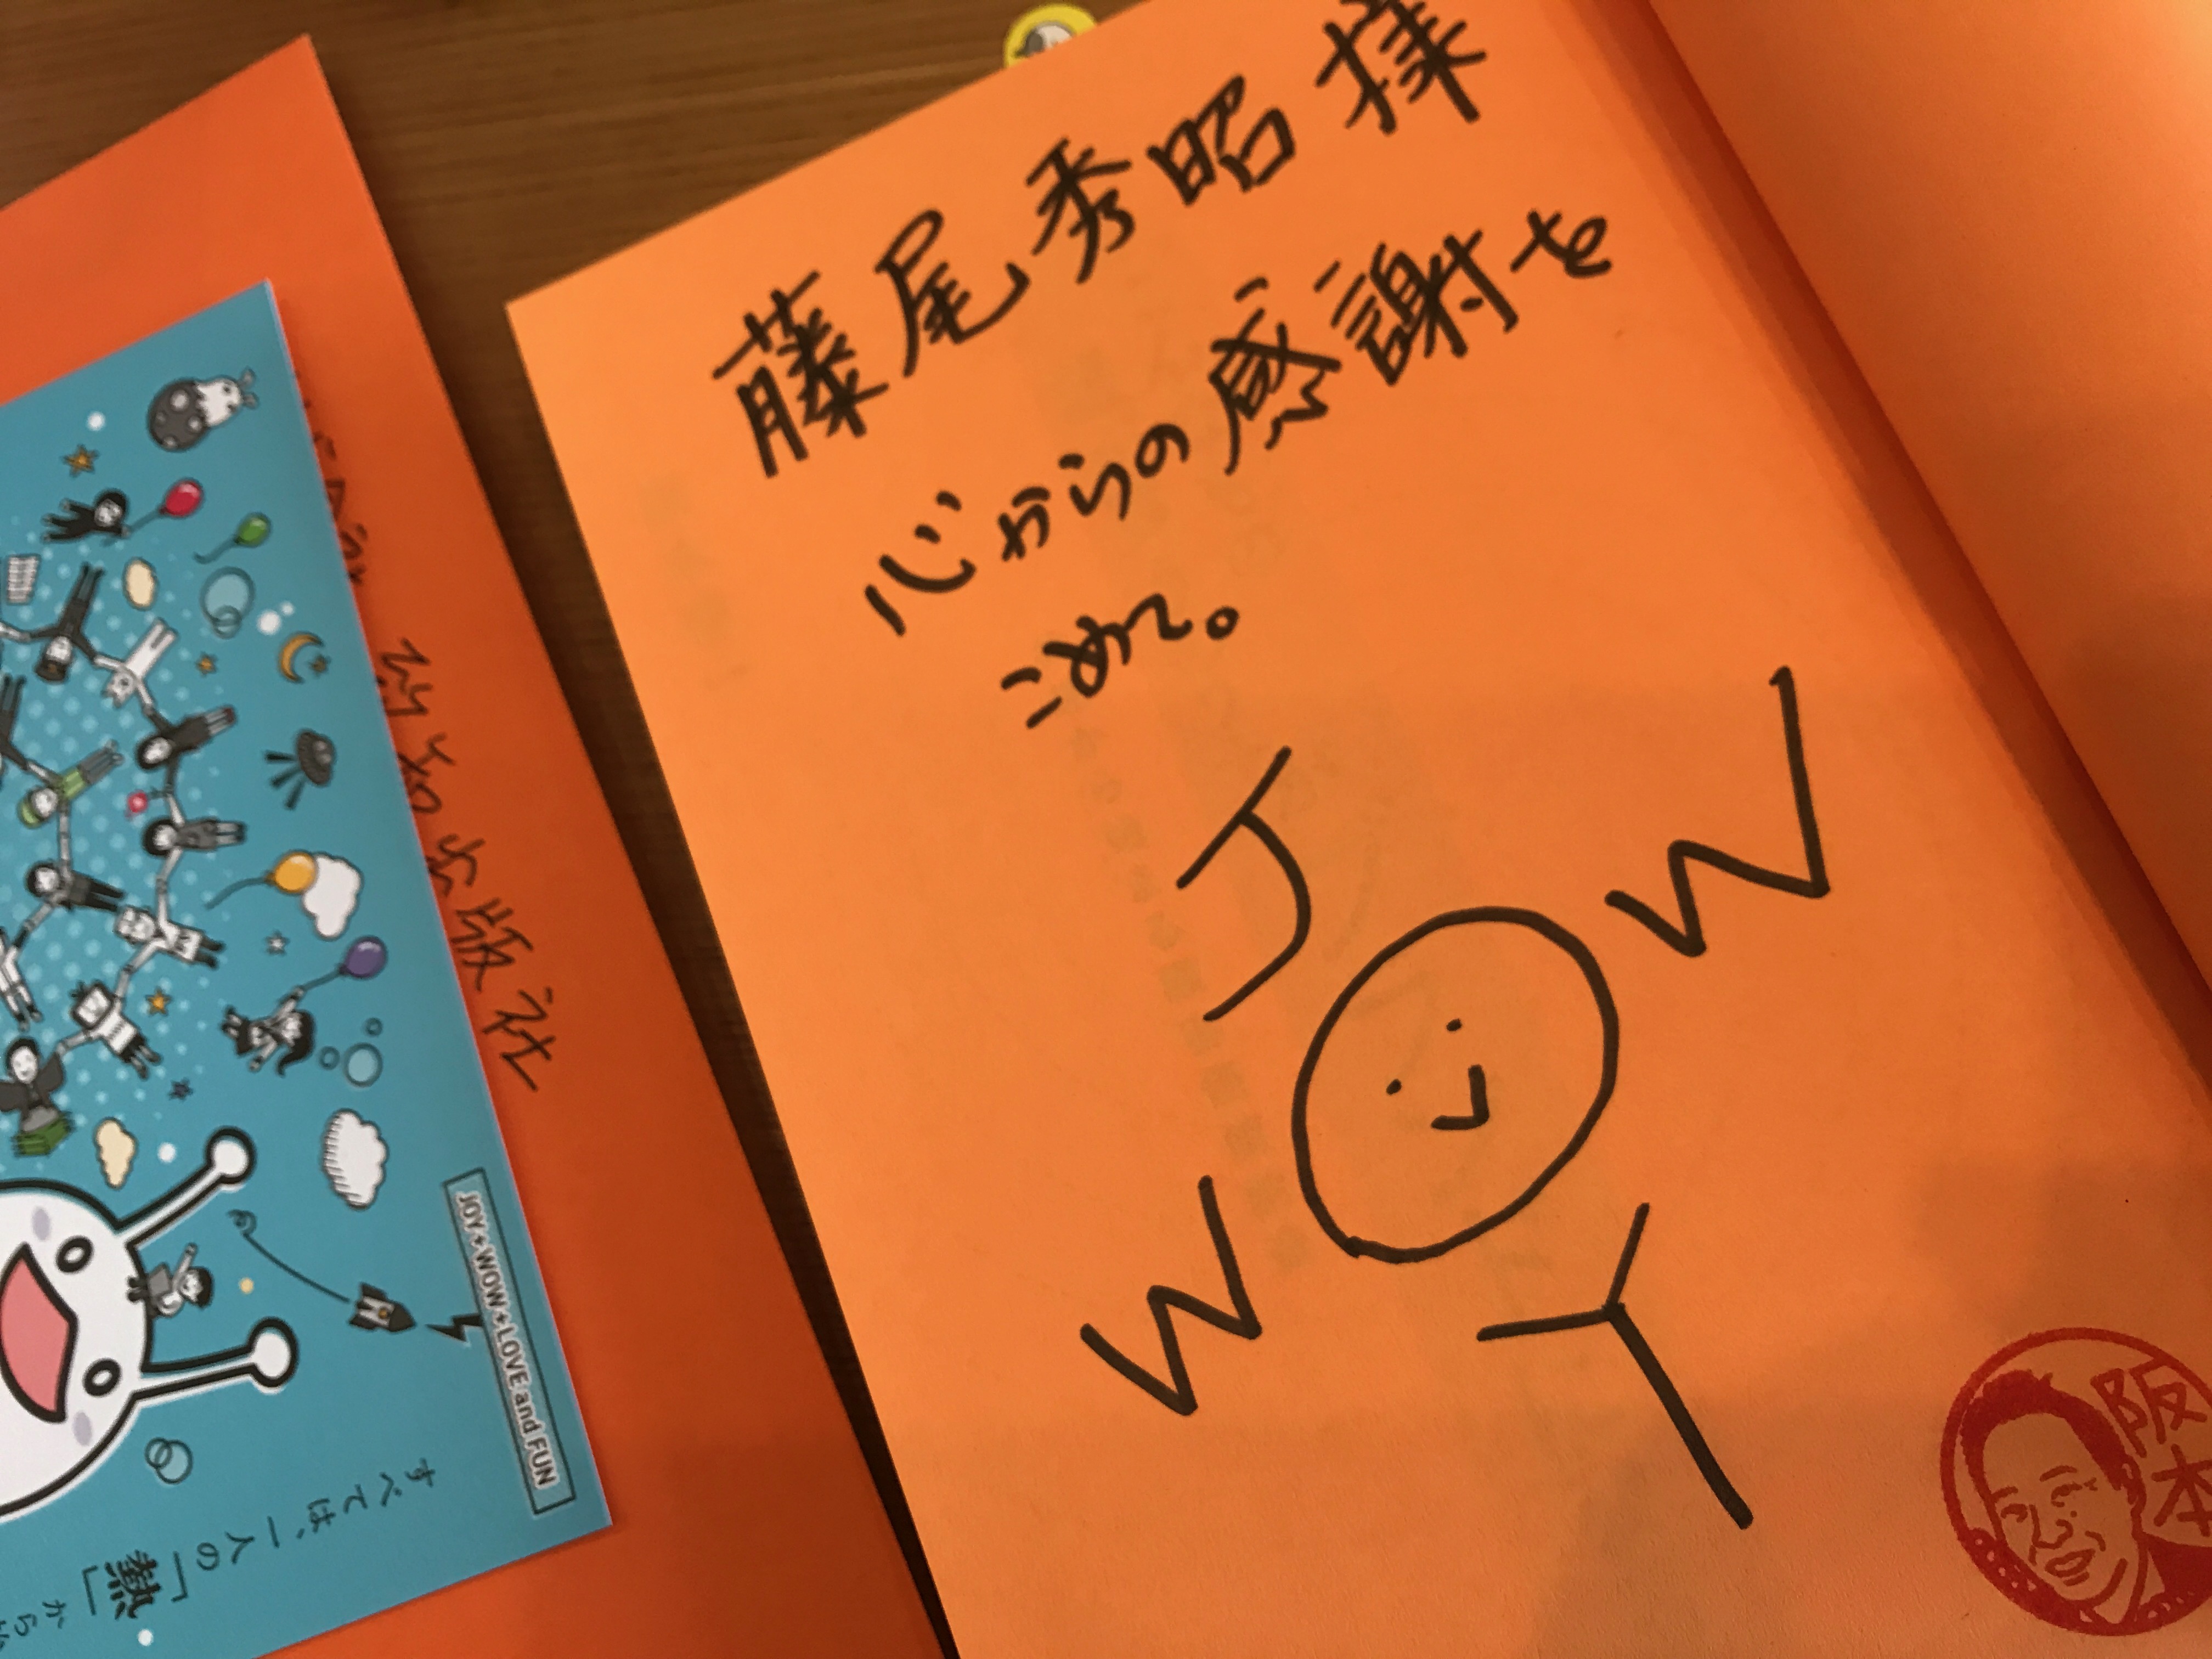 藤尾秀昭様
心からの感謝を
こめて。
J
W O W
Y
阪本
致知出版社
JOY+WOW+LOVE and FUN
すべては、一人の「熱」から